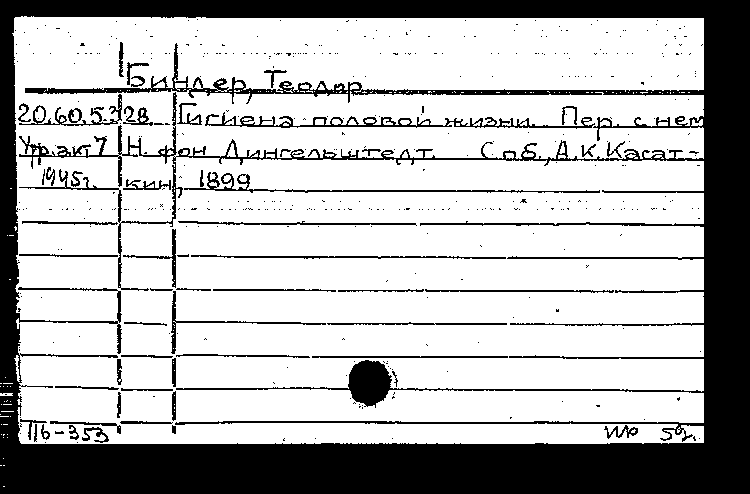 Биндер, Теодор
20.60.5.328. Гигиена половой жизни. Пер. с нем
Н. фон Дингельштедт. Соб., А.К. Касат-
1945г. кин, 1899
116-353 59.